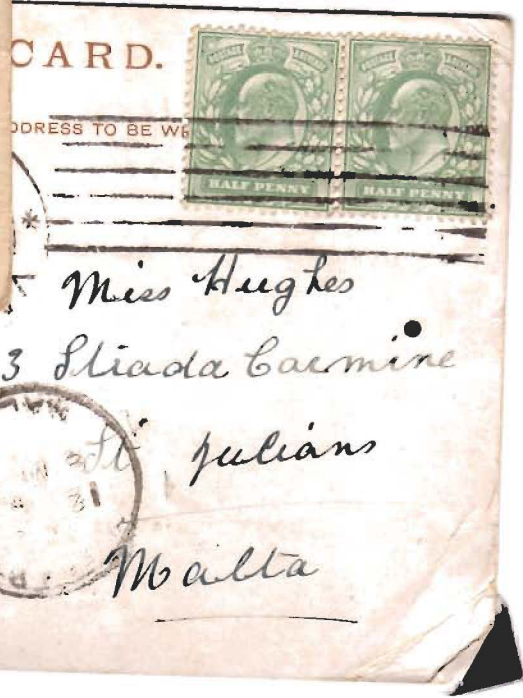 CARD.
ADDRESS TO BE
HALF PENNY HALF PENNY
Miss Hughes
3 Strada Carmine
St Julians
Malta